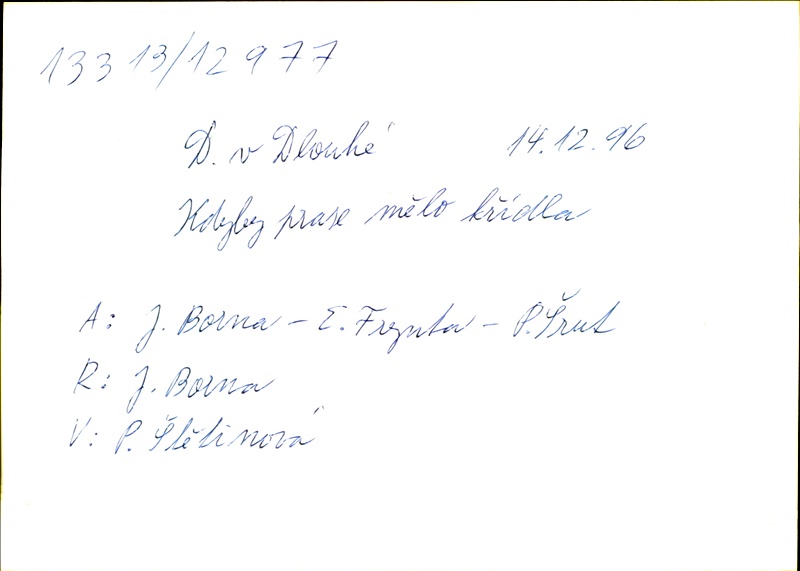 133 13/12 977
D. v Dlouhé 14.12.96
Kdyby prase mělo křídla
A: J. Borna - E. Frynta - P. Šrut
R: J. Borna
V: P. Štětinová